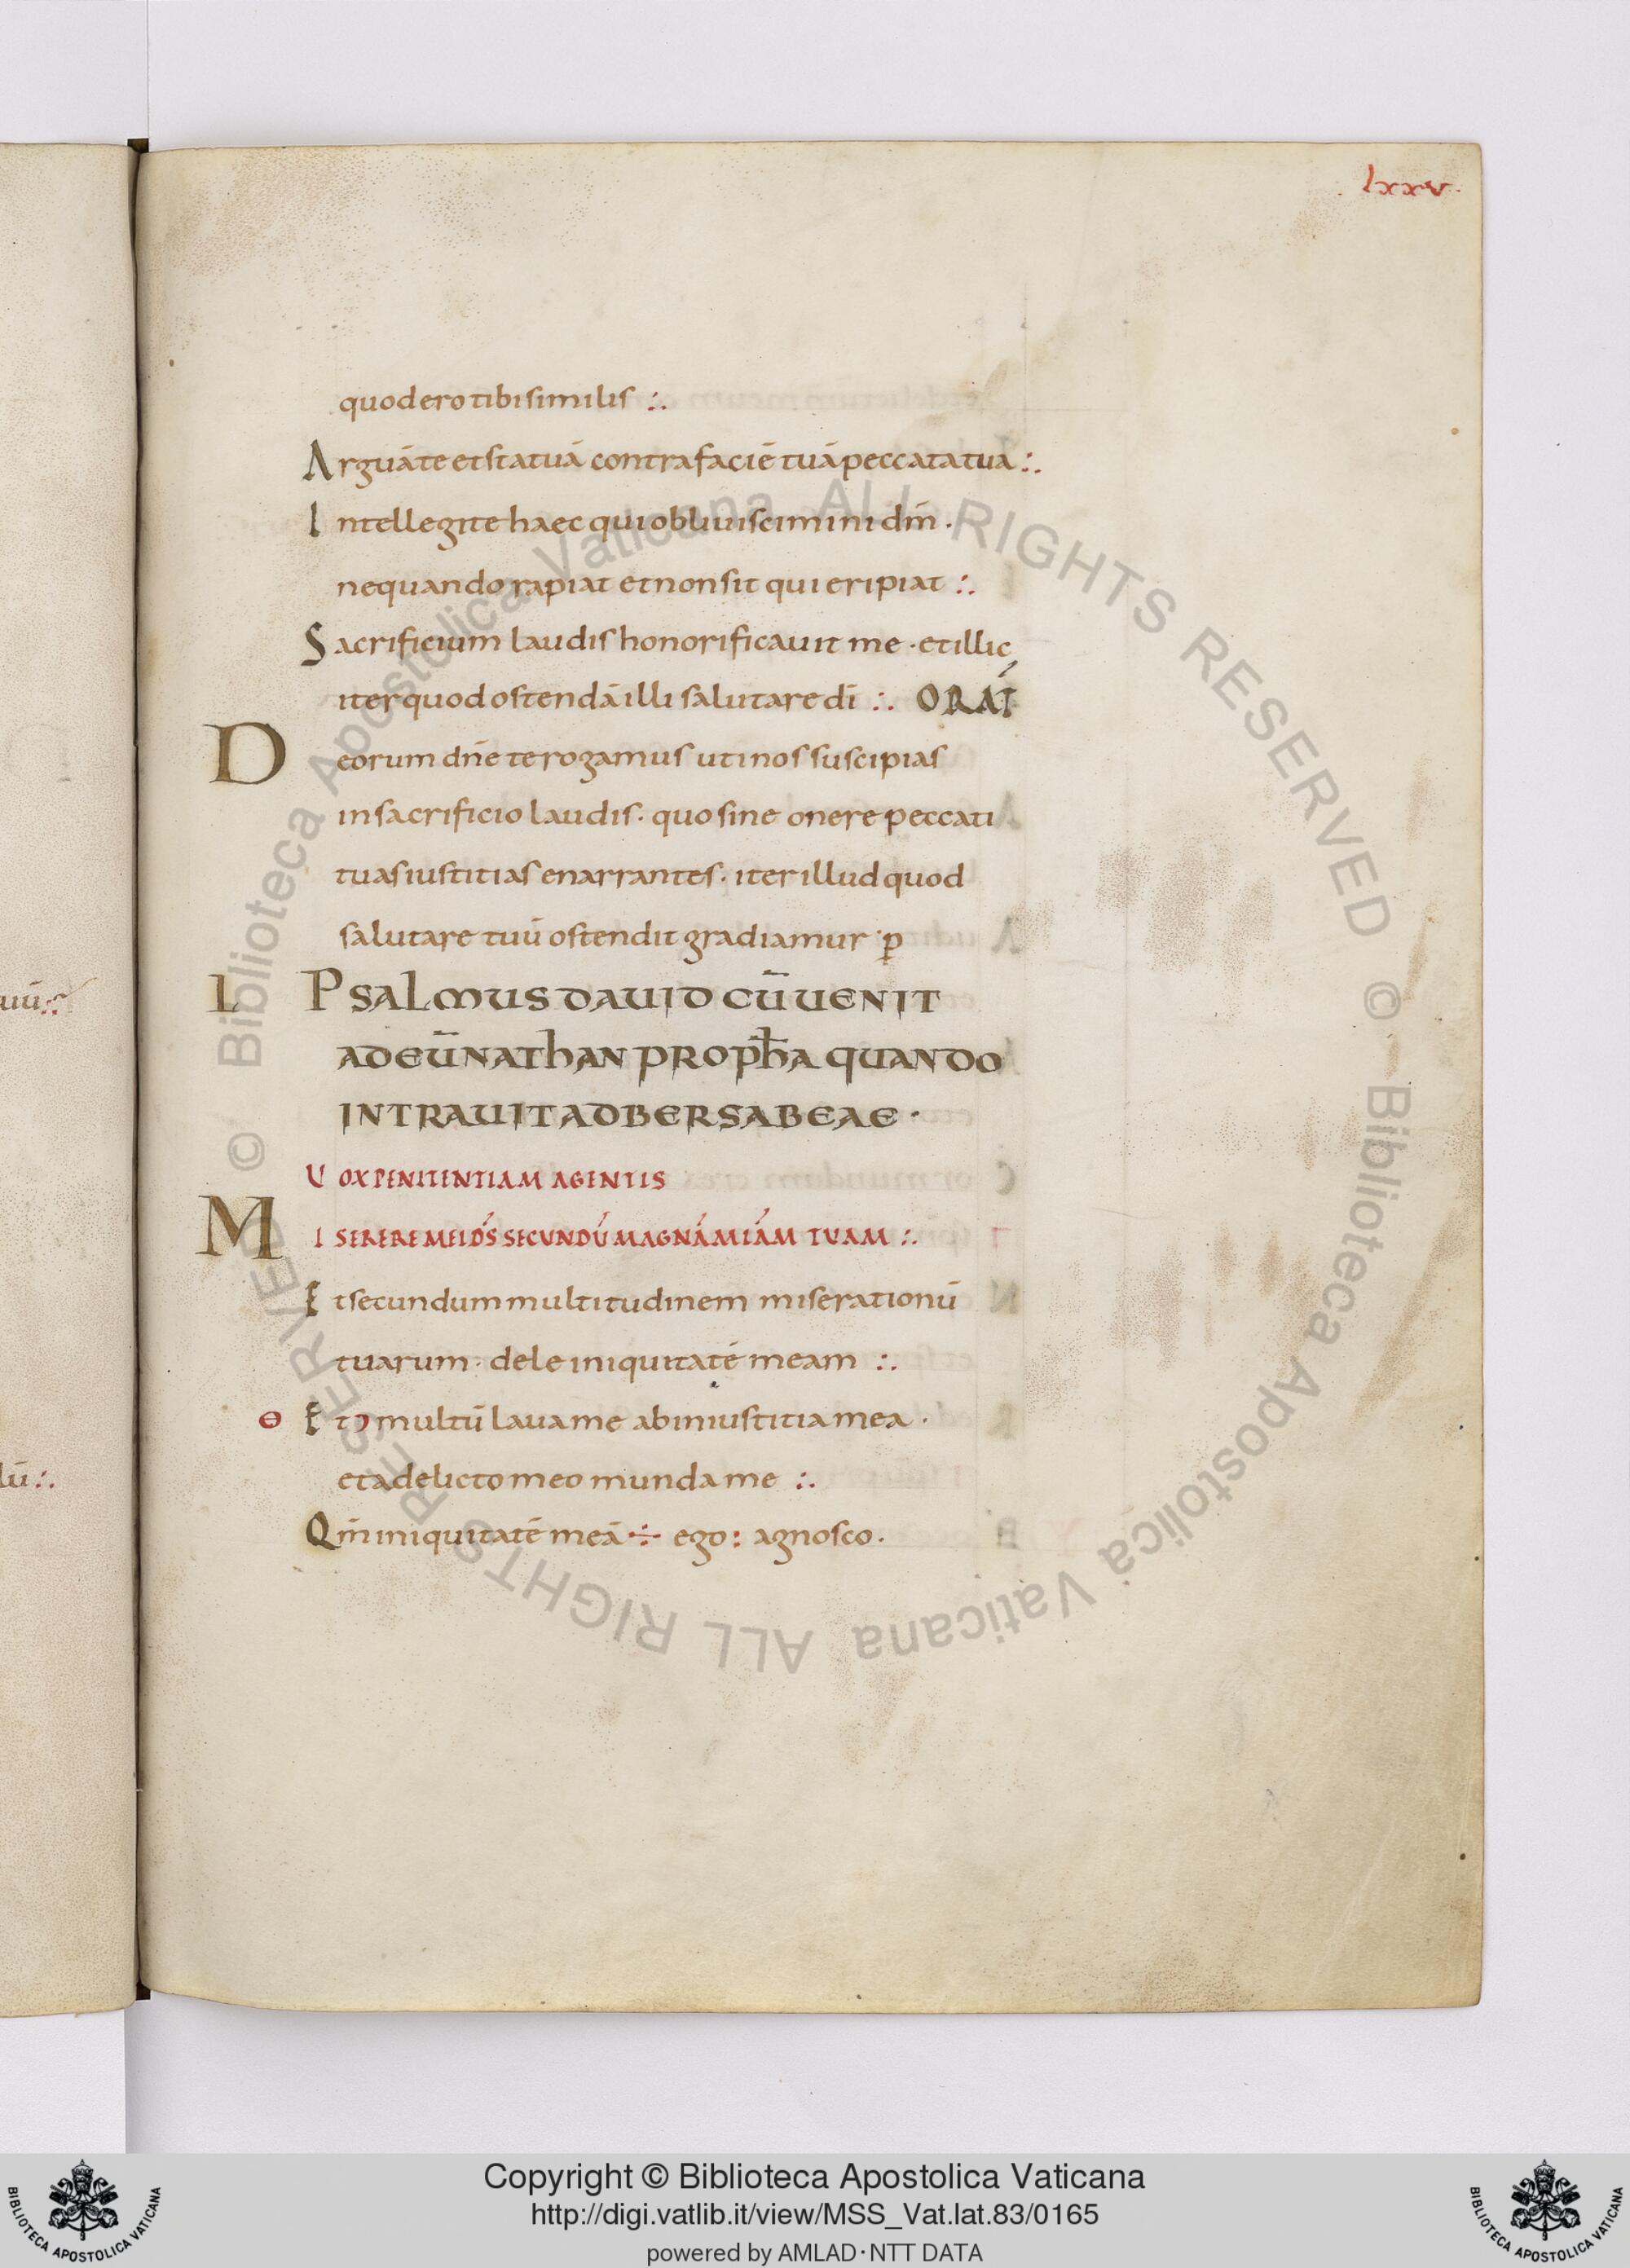 .lxxv.
quodero tibi similis :.
Arguā te et statuā contra faciē tuā peccata tua :.
Intellegite haec qui obliuiscimini dm̄ .
nequando rapiat et non sit qui eripiat :.
Sacrificium laudis honorificauit me · et illic
iter quod ostendā illi salutare dī :. ORAT̄
Deorum dn̄e te rogamus uti nos suscipias
in sacrificio laudis · quo sine onere peccati
tuas iustitias enarrantes · iter illud quod
salutare tuū ostendit gradiamur · ꝑ
L PSALMUS DAUID CŪ UENIT
AD EŪ NATHAN PROPH̄A QUANDO
INTRAUIT AD BERSABEAE ·
UOX PENITENTIAM AGENTIS
MISERERE MEI DS̄ SECUNDŪ MAGNĀ MIĀM TUAM :.
Et secundum multitudinem miserationū
tuarum · dele iniquitatē meam :.
Θ Et ↄ multū laua me ab iniustitia mea ·
et a delicto meo munda me :.
Qm̄ iniquitatē meā ÷ ego : agnosco ·
uū :.
lū :.
© Biblioteca Apostolica Vaticana ALL RIGHTS RESERVED © Biblioteca Apostolica Vaticana ALL RIGHTS RESERVED
Copyright © Biblioteca Apostolica Vaticana
http://digi.vatlib.it/view/MSS_Vat.lat.83/0165
powered by AMLAD·NTT DATA
BIBLIOTECA APOSTOLICA VATICANA
BIBLIOTECA APOSTOLICA VATICANA